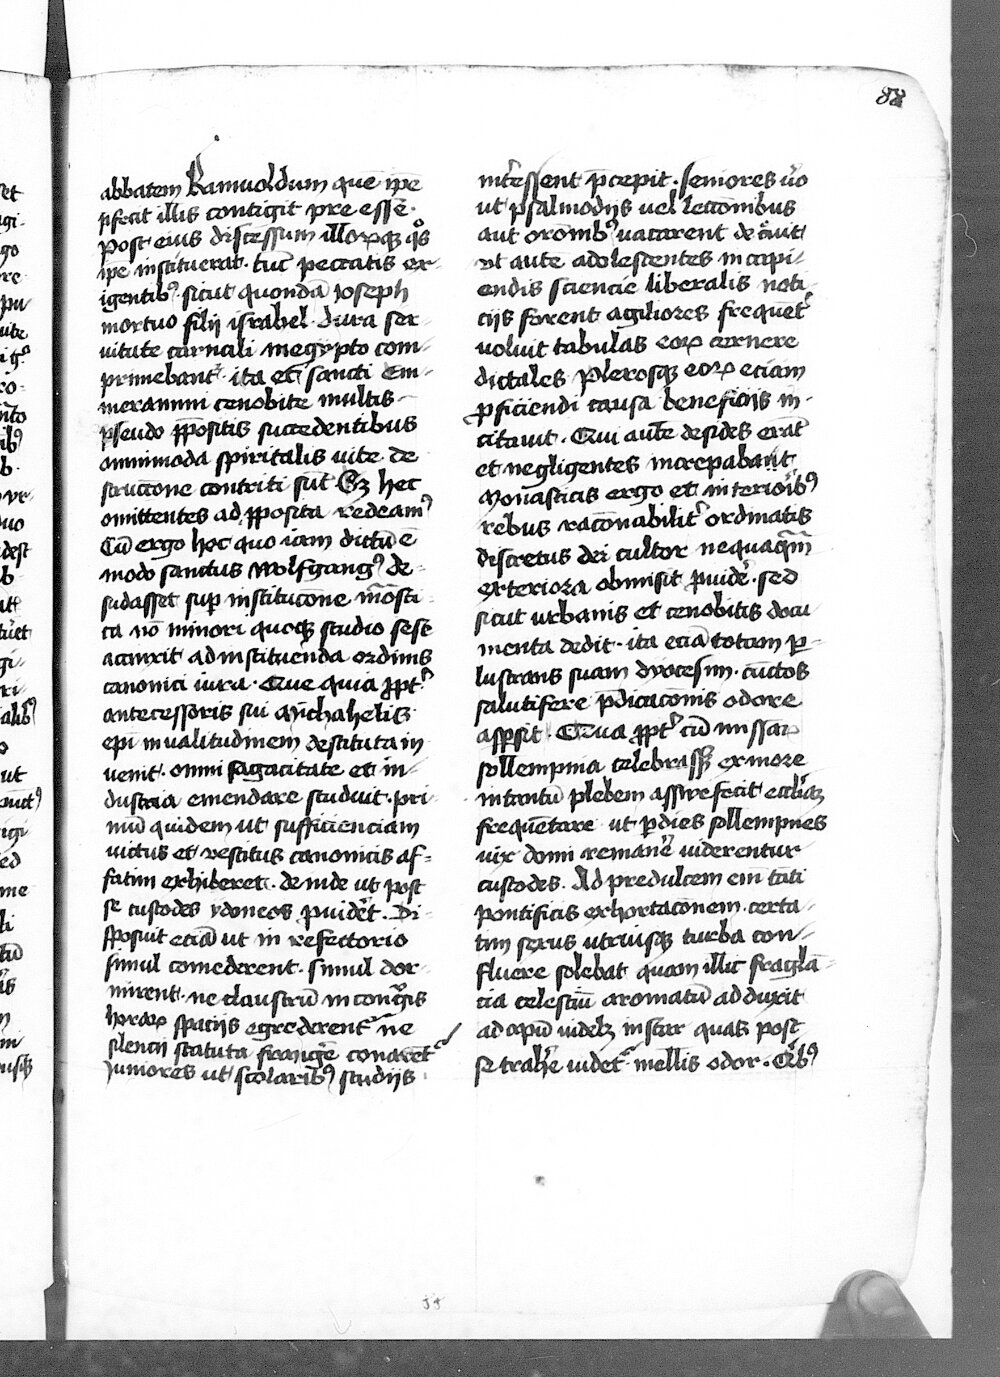 88
abbatem Ramuoldum quē ipe
p̄fecit illis contigit pre esse ·
Post eius discessum illorꝝqꝫ q°s
ipe instituerat · tūc peccatis ex-
igentibꝰ · sicut quondā Joseph
mortuo filij israhel dura ser-
vitute carnali in egypto com-
primebant᷑ · ita et sancti Em-
merammi cenobite multis
pseudo ꝓpositis succedentibus
omnimoda spiritalis uite de
struccōne contriti sūt Sꝫ hec
omittentes ad ꝓposita redeamꝰ
Cū ergo hoc quo iam dictū ē
modo sanctus Wolfgangꝰ de-
sudasset sup institucōne mōsti-
ca nō minori quoqꝫ studio sese
accinxit ad instituenda ordinis
canonici iura · Que quia ꝓpt᷑
antecessoris sui Michahelis
epi inualitudinem destituta in
uenit · omni sagacitate et in-
dustria emendare studuit · pri-
mū quidem ut sufficienciam
uictus et vestitus canonicis af-
fatim exhiberet · deinde ut post
se custodes ydoneos ꝓuidēt · Di-
sposuit eciā ut in refectorio
simul comederent · simul dor-
mirent · ne claustrū incongͧis
horarꝝ spaciis egrederent᷑ ne
silencij statuta frangēr conarēt᷑
Juniores ut scolaribꝰ studijs
inteēssent p̄cepit · Seniores ūo
ut psalmodijs uel leccōnibus
aut orōnibꝰ uacarent decͤuit
Ut aute adolescentes in capi-
endis sciencie liberalis noti
cijs forent agiliores frequēt᷑
voluit tabulas eoꝝ cernere
dictales Plerosqꝫ eoꝝ eciam
ꝓficiendi causa beneficijs in-
citauit · Qui autē desides erāt
et negligentes increpabant
Monasticis ergo et interioribꝰ
rebus racōnabilit᷑ ordinatis
discretus dei cultor nequaq̄m
exteriora obmisit ꝓuidēr · sed
sicut urbanis et cenobitis docu
menta dedit · ita eciā totam ꝑ-
lustrans suam dyocesim · cūctos
salutifere p̄dicacōnis odore
asꝑsit · Qua ꝓpt᷑ cū missarꝝ
sollempnia celebrassꝫ ex more
in tantū plebem assuefecit eccliaꝫ
frequētare ut ꝑ dies sollempnes
uix domi remanēr uiderentur
custodes · Ad predulcem em tāti
pontificis exhortacōnem · certa-
tim sexus utriusqꝫ turba con-
fluere solebat quam illic fraglā-
cia celestiū aromatū adduxit
ad apum uidelꝫ instar quas post
se trahēr uidet᷑ mellis odor · Qͥbꝰ